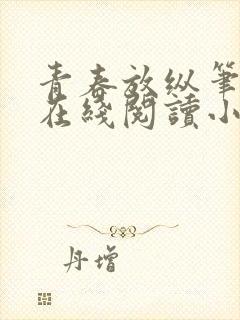 青春放纵筆
在綫閱讀小
丹增